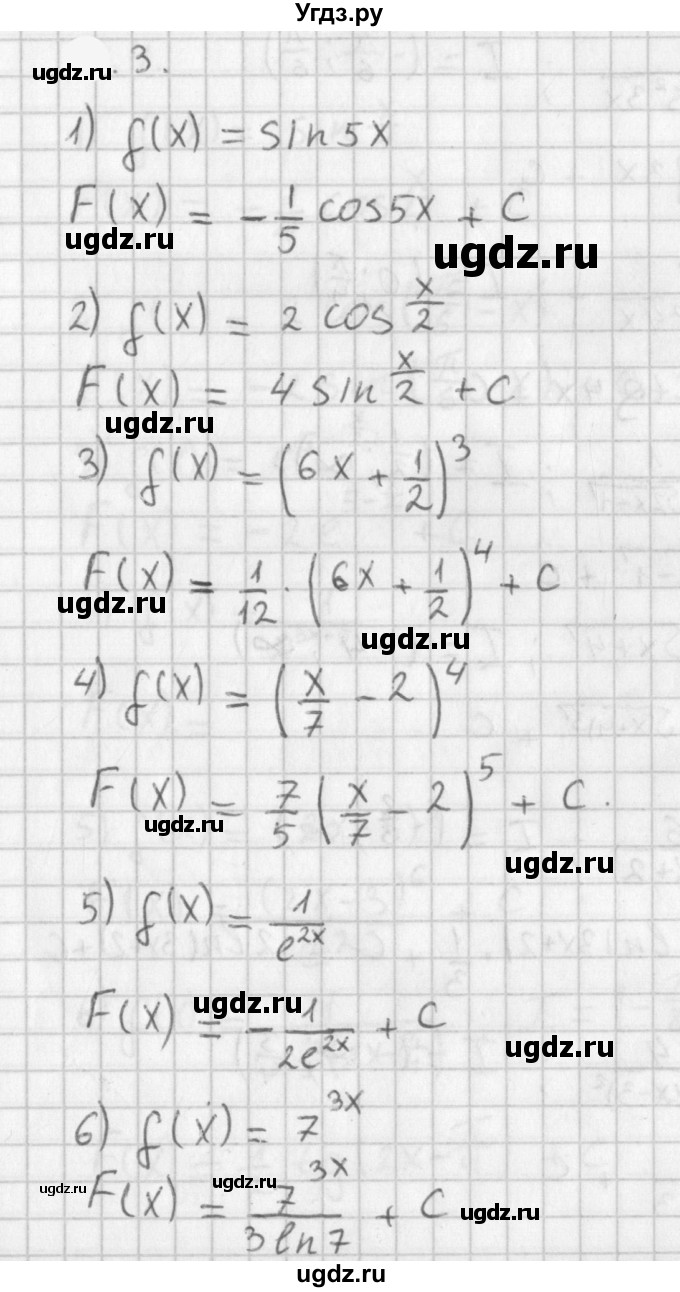 Угдз.ру
ugdz.ru . 3.
1) f(x) = sin5x
F(x) = -1/5 cos5x + C
ugdz.ru
ugdz.ru
2) f(x) = 2 cos x/2
F(x) = 4 sin x/2 + C
ugdz.ru
3) f(x) = (6x + 1/2)^3
F(x) = 1/12 · (6x + 1/2)^4 + C
ugdz.ru
ugdz.ru
4) f(x) = (x/7 - 2)^4
F(x) = 7/5 (x/7 - 2)^5 + C.
ugdz.ru
ugdz.ru
5) f(x) = 1/e^2x
F(x) = -1/2e^2x + C
ugdz.ru
ugdz.ru
6) f(x) = 7^3x
F(x) = 7^3x/3ln7 + C
ugdz.ru
ugdz.ru
ugdz.ru
ugdz.ru